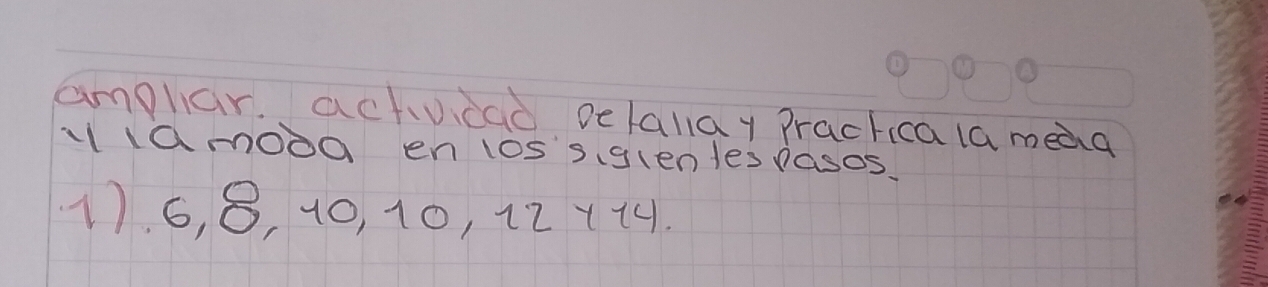 ampliar. actividad. Detalla y Practica la media
y la moda en los siguientes pasos.
1). 6, 8, 10, 10, 12 y 14.